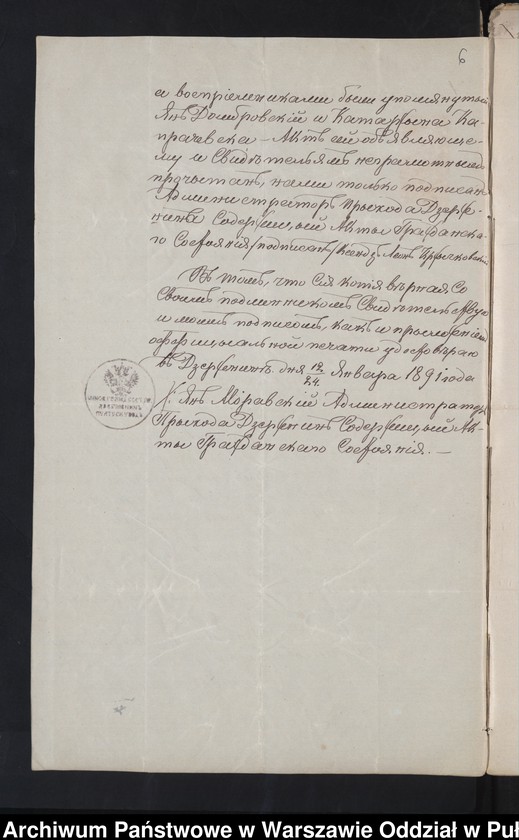 6
а воспріемниками были упомянутый
Янъ Домбровскій и Катаржина Ка-
прачевска – Актъ сей объявляюще-
му и Свидѣтелямъ неграмотнымъ
прочытанъ, нами только подписанъ
Администраторъ Прихода
Содержащый Акты Гражданска-
го Состоянія /подписанъ/ Ксендзъ Леонъ
Въ томъ, что Сія копія вѣрная со
Своимъ подлинникомъ Свидѣтельствую
и моимъ подписомъ, какъ и приложеніемъ
оффиціальной печати удостовѣряю
въ дня 12/24 Января 1891 года
Кс. Янъ Моравскій Администраторъ
Прихода Содержащый Ак-
ты Гражданскаго Состоянія. —
Archiwum Państwowe w Warszawie Oddział w Puł